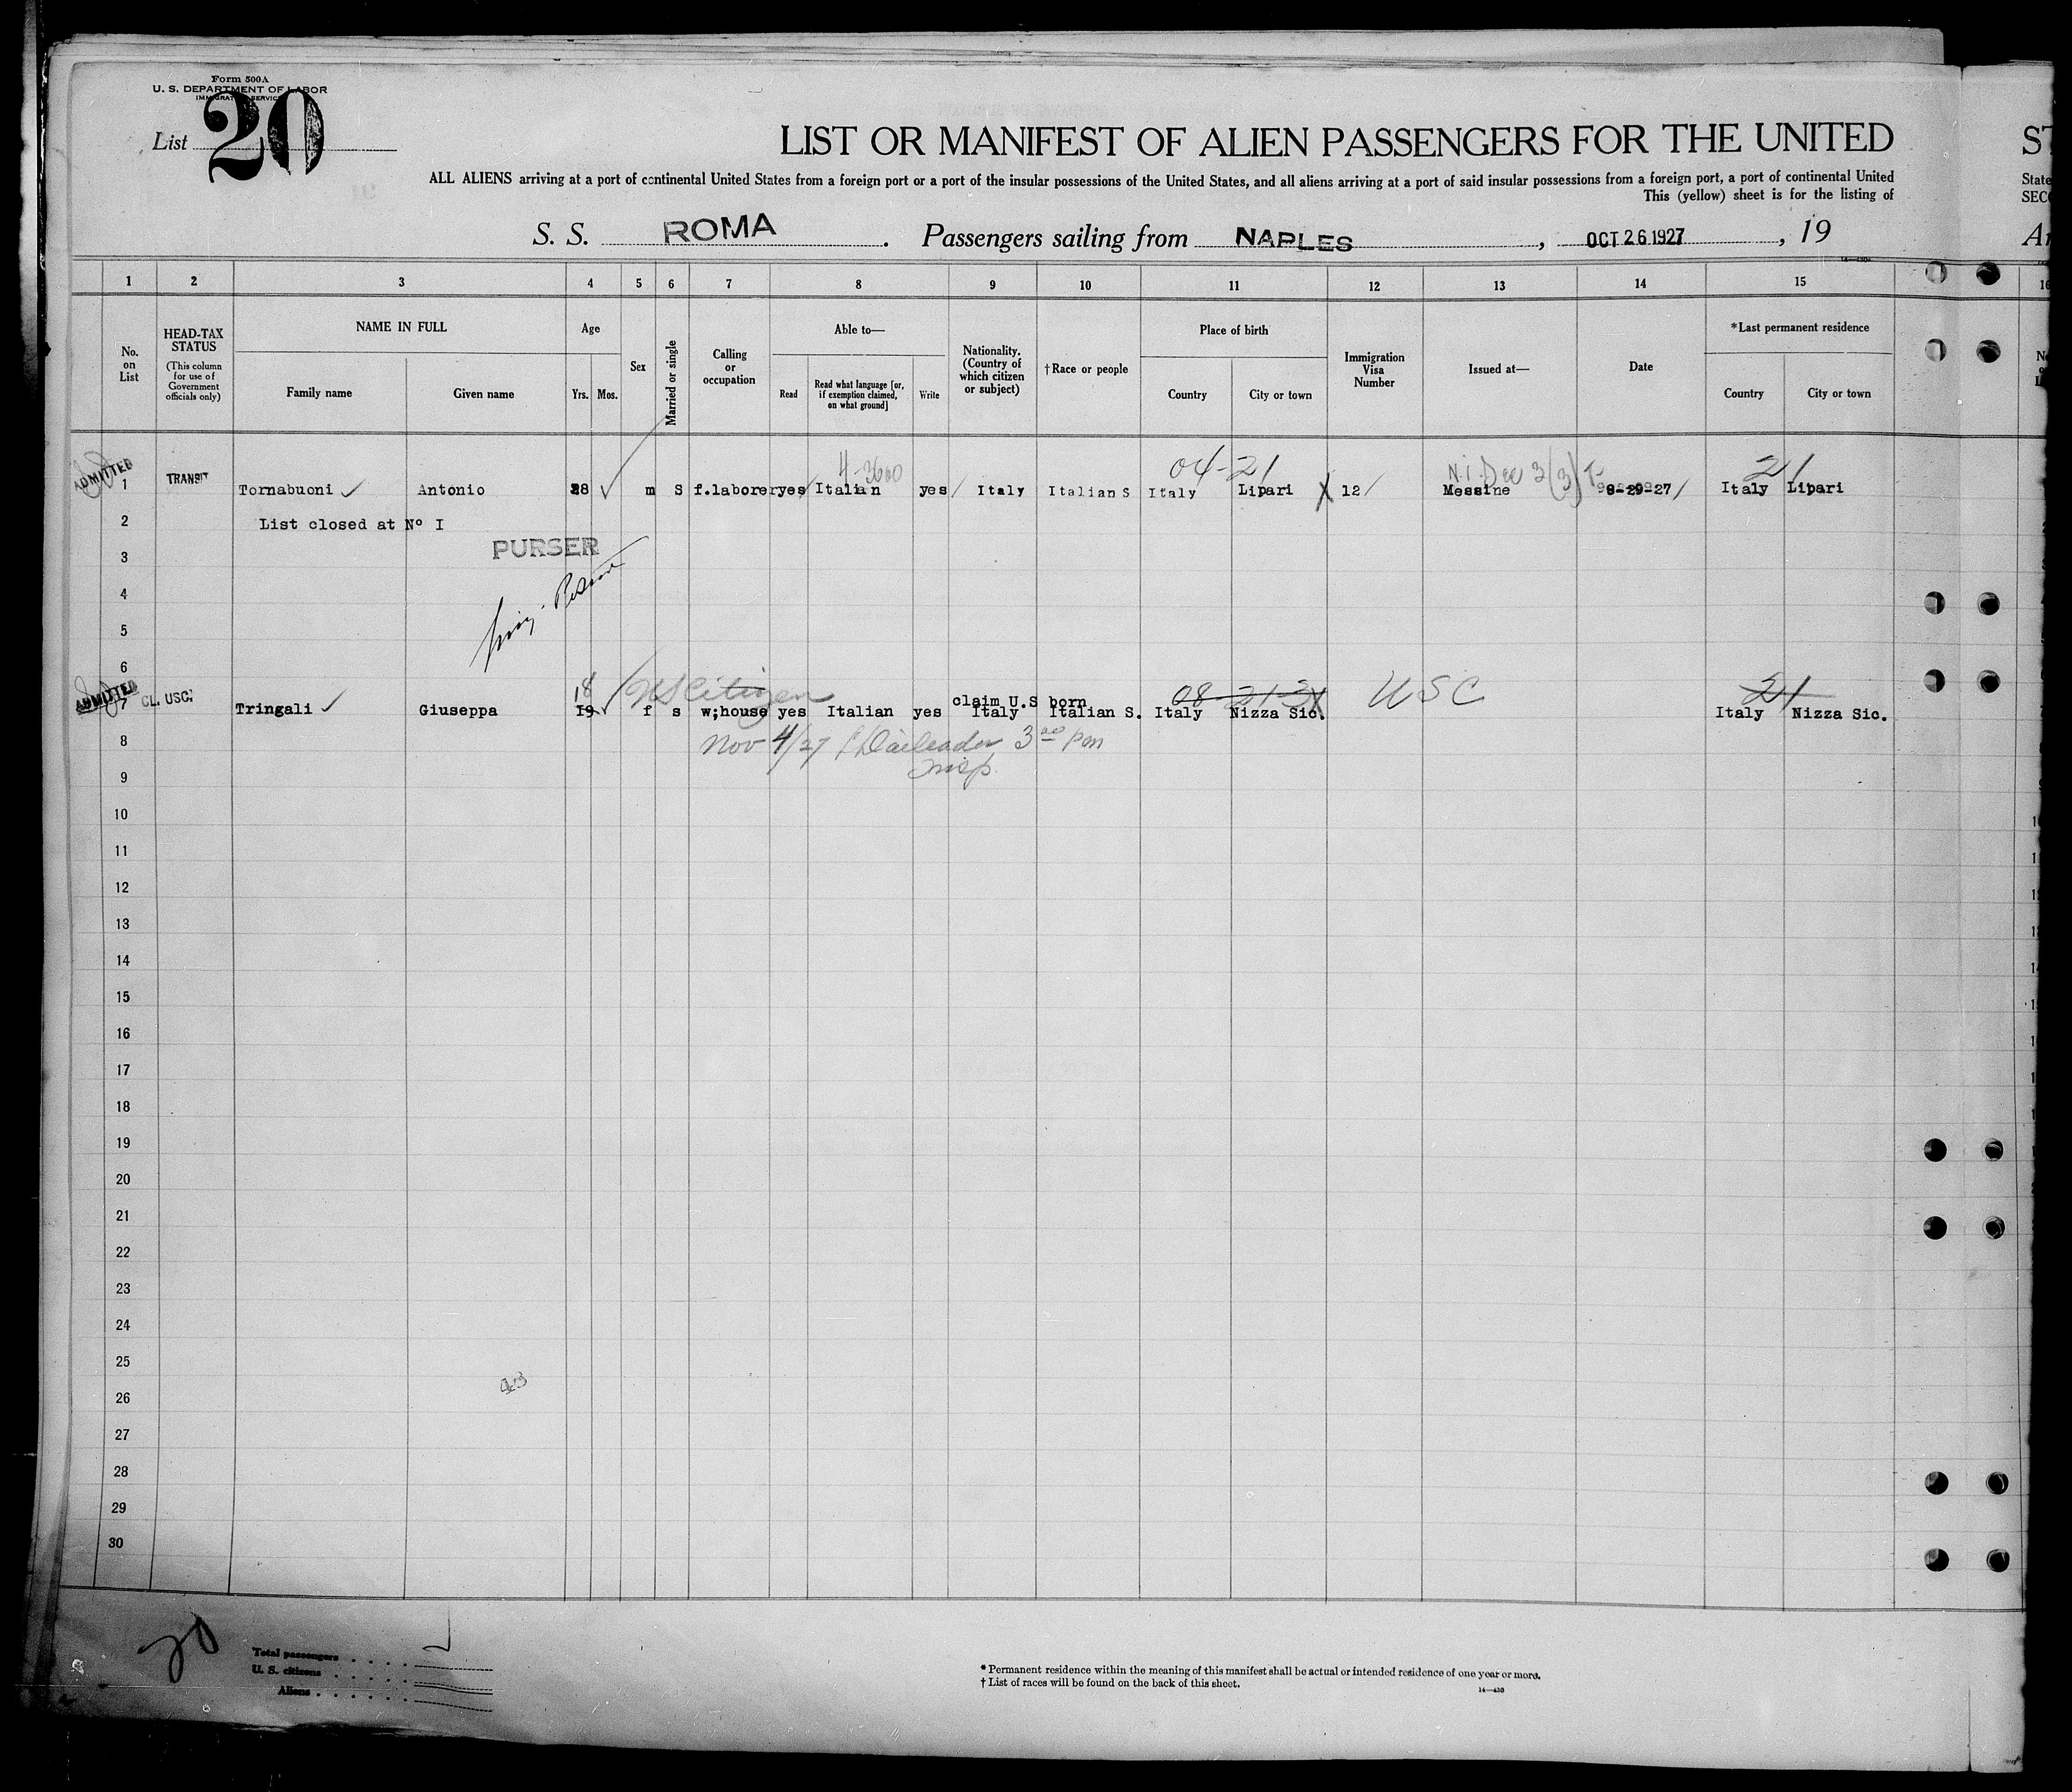 Form 500A
U. S. DEPARTMENT OF LABOR
IMMIGRATION SERVICE
List 20
LIST OR MANIFEST OF ALIEN PASSENGERS FOR THE UNITED
ST
ALL ALIENS arriving at a port of continental United States from a foreign port or a port of the insular possessions of the United States, and all aliens arriving at a port of said insular possessions from a foreign port, a port of continental United
State
This (yellow) sheet is for the listing of
SECO
S. S. ROMA . Passengers sailing from NAPLES , OCT 26 1927 , 19
Ar
1 2 3 4 5 6 7 8 9 10 11 12 13 14 15 16
No. on List
HEAD-TAX STATUS
(This column for use of Government officials only)
NAME IN FULL
Family name
Given name
Age
Yrs. Mos.
Sex
Married or single
Calling or occupation
Able to—
Read
Read what language [or, if exemption claimed, on what ground]
Write
Nationality. (Country of which citizen or subject)
†Race or people
Place of birth
Country
City or town
Immigration Visa Number
Issued at—
Date
*Last permanent residence
Country
City or town
4-3660 04-21 21
ADMITTED 1 TRANSIT Tornabuoni ✓ Antonio 28 ✓ m S f.laborer yes/ Italian yes/ Italy Italian S Italy Lipari X 12/ Messine 9-29-27/ Italy Lipari
2 List closed at Nº I
PURSER
3
4
5
6
18 US Citizen claim U.S born 08 21 21 USC 21
ADMITTED 7 CL. USC. Tringali ✓ Giuseppa 19 f s w;house yes Italian yes Italy Italian S. Italy Nizza Sic. Italy Nizza Sic.
8 Nov 4/27 3 00 pm
Insp.
9
10
11
12
13
14
15
16
17
18
19
20
21
22
23
24
25
26
27
28
29
30
20
Total passengers . . . .
U. S. citizens . . . .
Aliens . . . . . .
* Permanent residence within the meaning of this manifest shall be actual or intended residence of one year or more.
† List of races will be found on the back of this sheet.
14—430